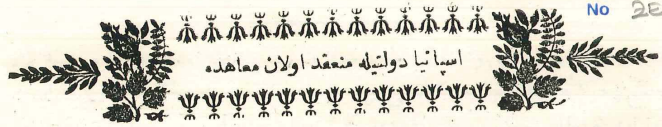 No 28
اسپانیا دولتیله منعقد اولان معاهده